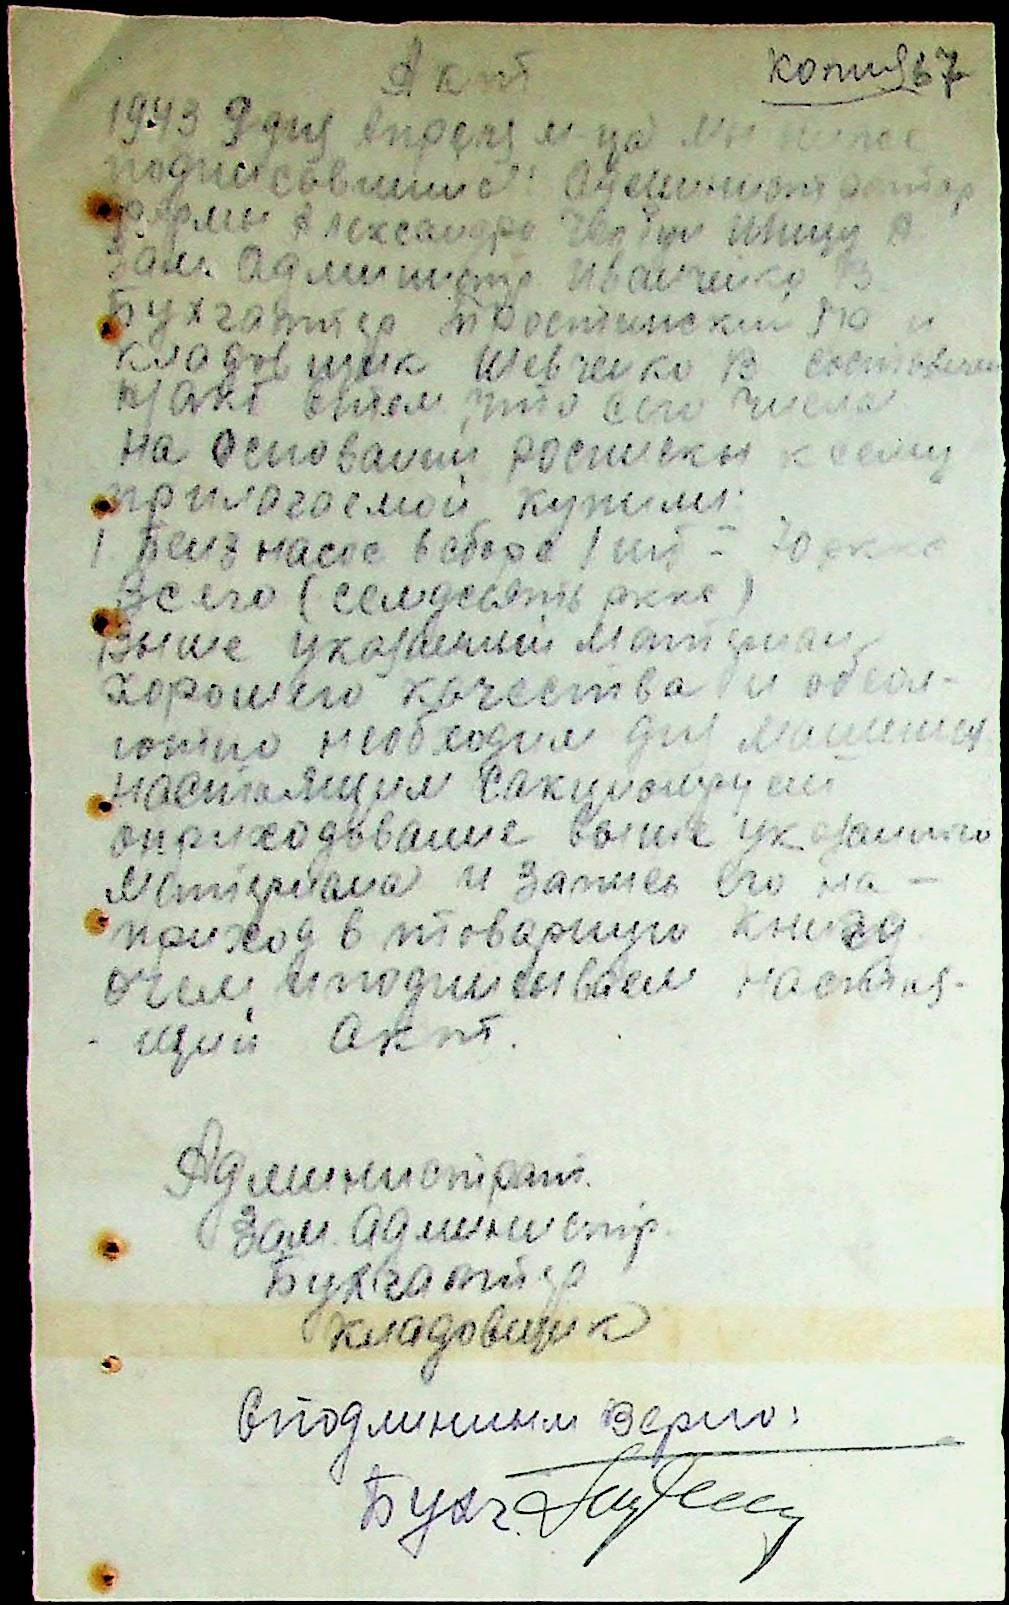 Акт
копия 67
1943 9 дня Апреля м-ца Мы ниже
подписавшиеся: Администратор
фермы Александра
Зам. Администр Иванченко В
Бухгалтер и
кладовщик Шевченко В составили
н/акт втом, что сего числа
на основании росписки к сему
прилагаемой купили:
1. Бенз насос всборе 1 шт = 70
Всего (семдесять )
Выше указанный материал
хорошего качества и обсол-
ютно необходим для машины
настоящим сакционируем
оприходование выше указанного
материала и запись его на -
приход в товарную книгу
очем и подписываем настоя-
щий акт.
Администрат.
Зам. Администр.
Бухгалтер
Кладовщик
Сподлинным верно:
Бухг.